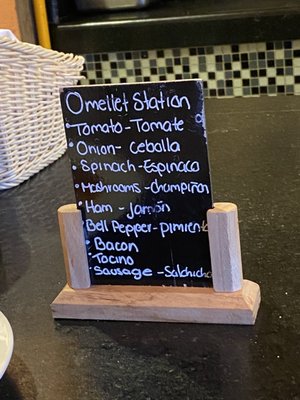 Omellet Station
• Tomato-Tomate
• Onion- ceballa
• Spinach-Espinaca
• Mashrooms-champiñon
• Ham - Jamón
• Bell Pepper-pimiento
• Bacon
• Tocino
• Sausage -Salchicha